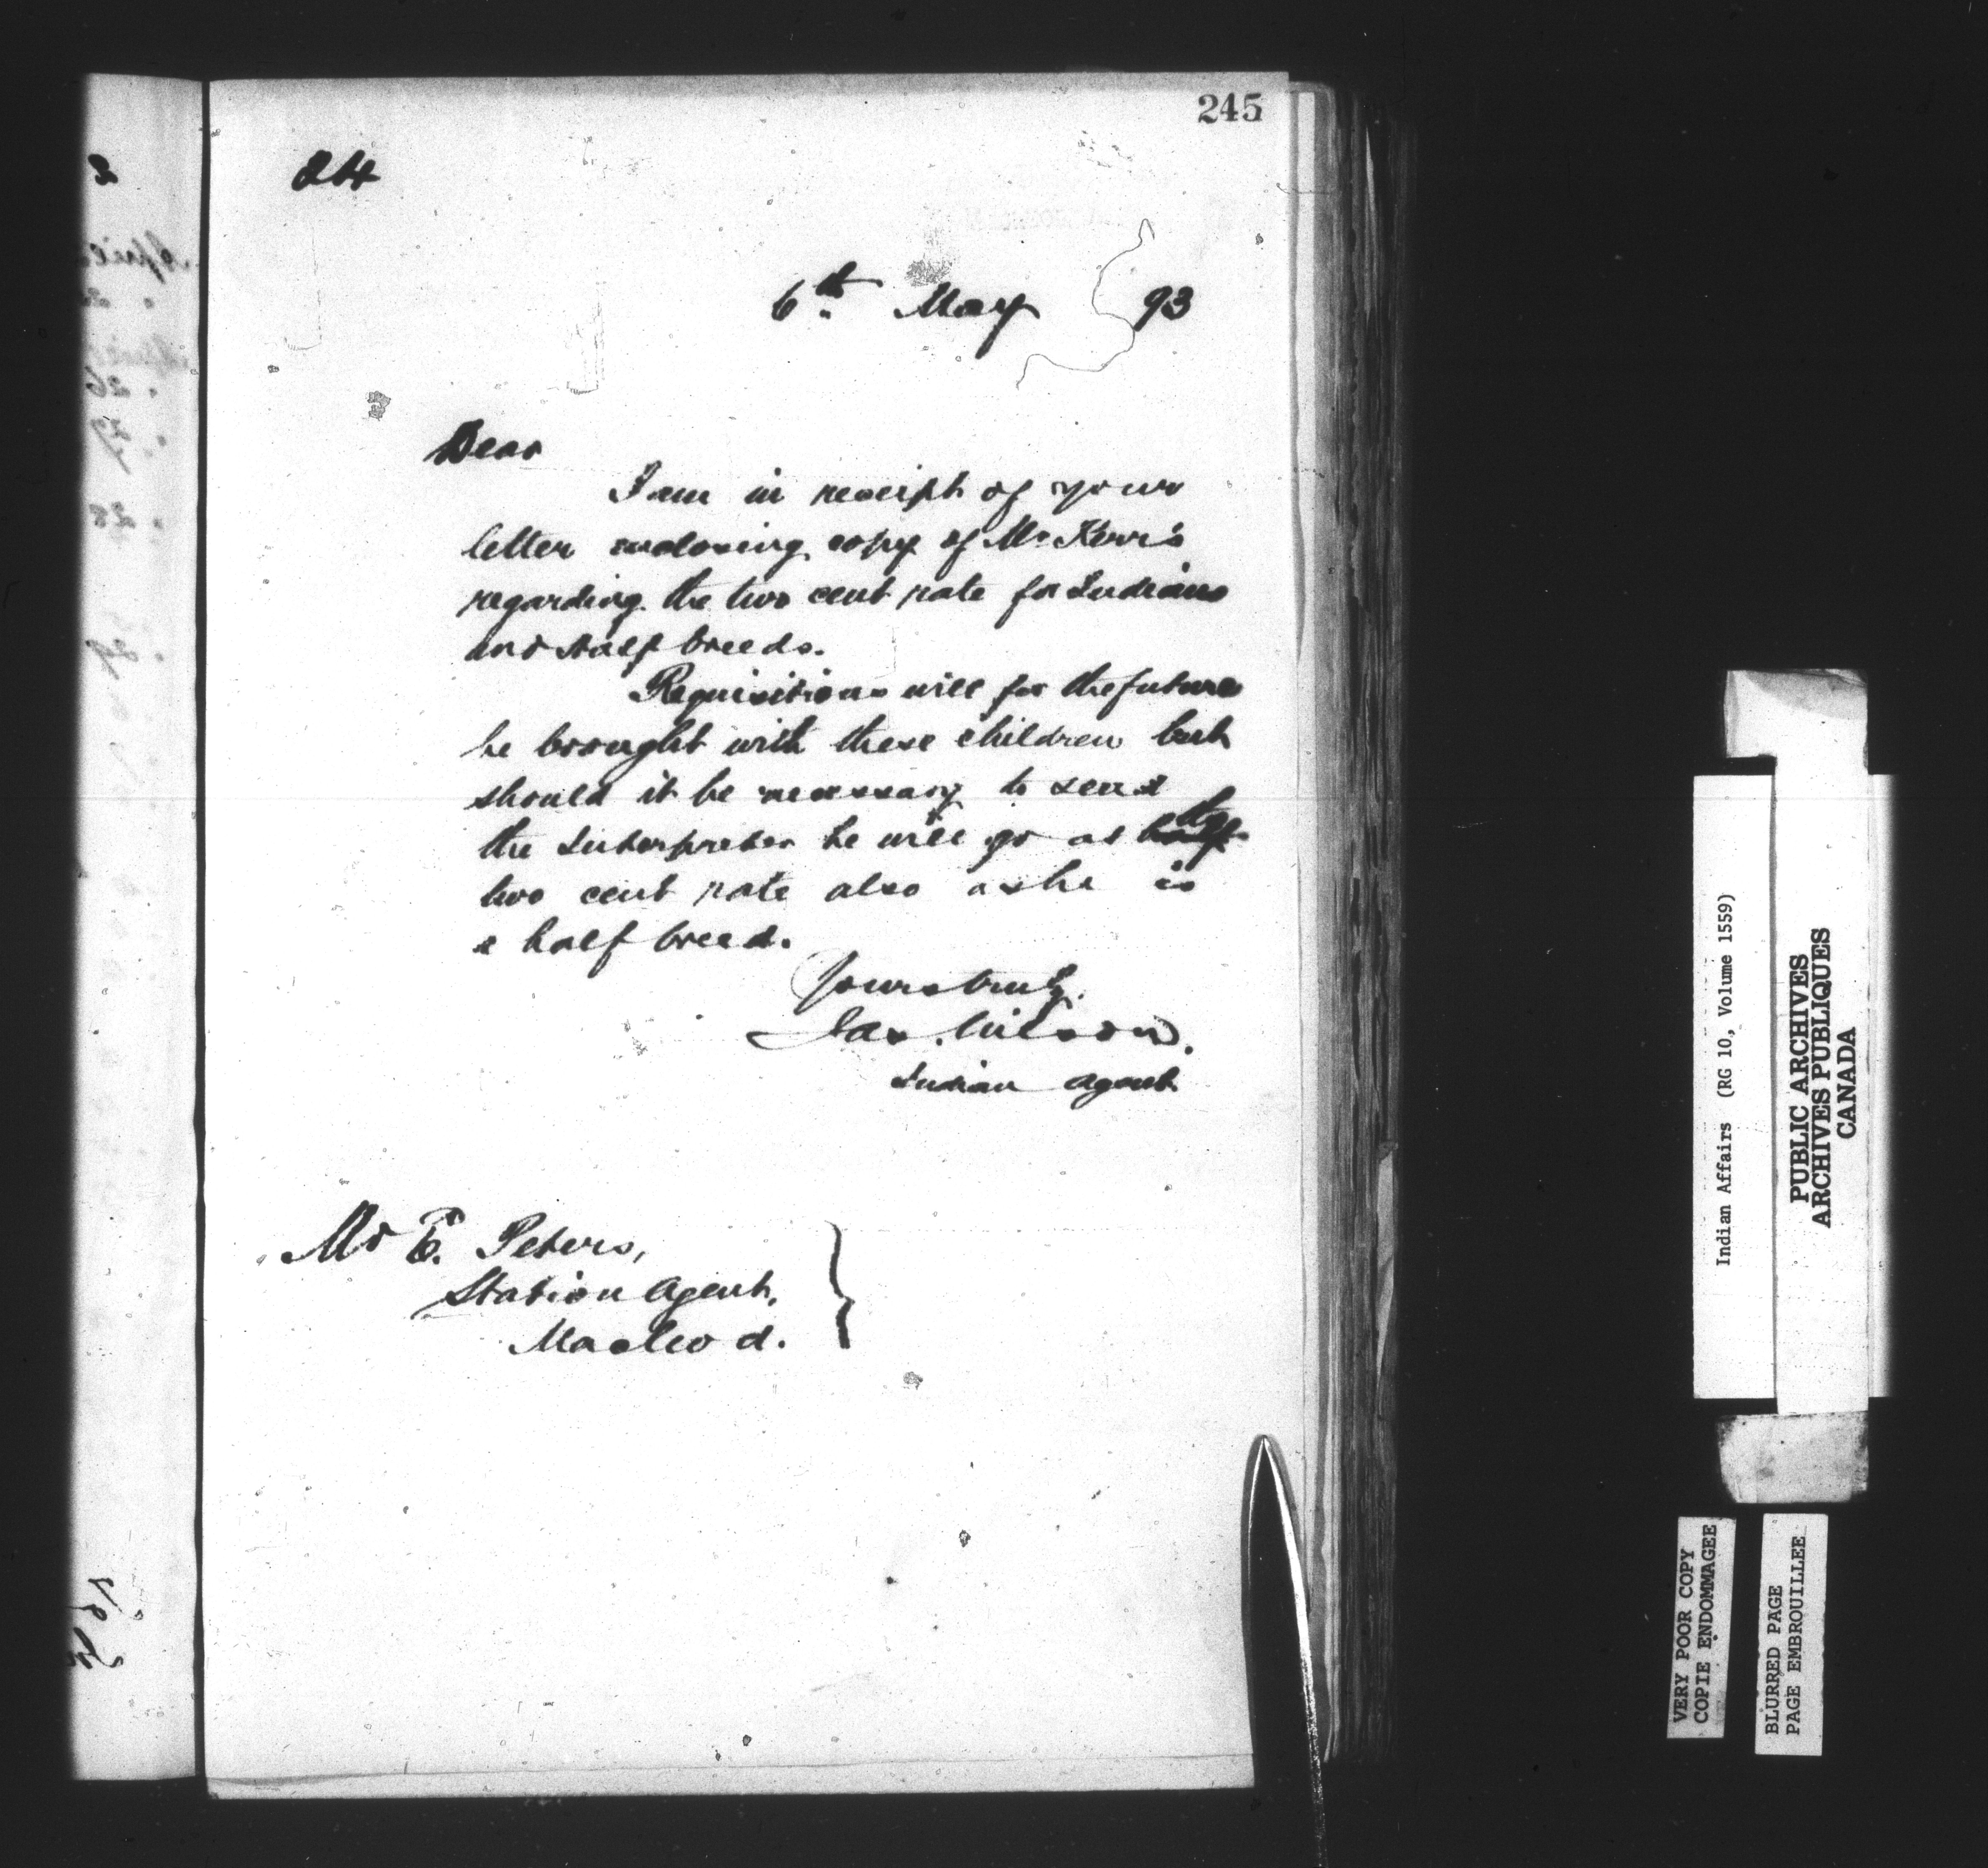 245
214
6th. May 93
Dear
I am in receipt of your
letter enclosing copy of Mr Kerr's
regarding the two cent rate for Indians
and Half breeds.
Requisitions will for the future
be brought with these children but
should it be necessary to send
the Interpreter he will go at the
two cent rate also as he is
a half breed.
Yours truly.
Jas. Wilson.
Indian Agent
Mr E. Peters,
Station Agent,
Macleod.
Indian Affairs (RG 10, Volume 1559)
PUBLIC ARCHIVES
ARCHIVES PUBLIQUES
CANADA
VERY POOR COPY
COPIE ENDOMMAGEE
BLURRED PAGE
PAGE EMBROUILLEE